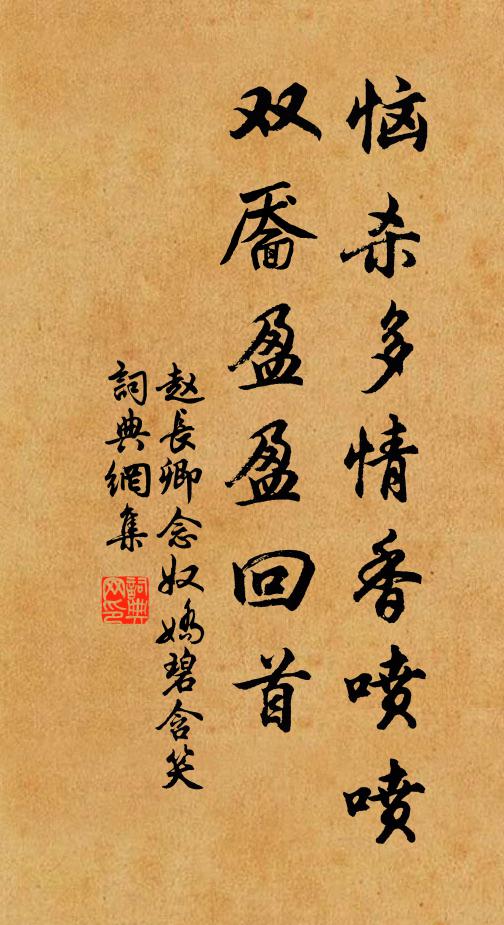 恼杀多情香喷喷
双靥盈盈回首
赵長卿念奴嬌碧含笑
詞典網集
詞典网印